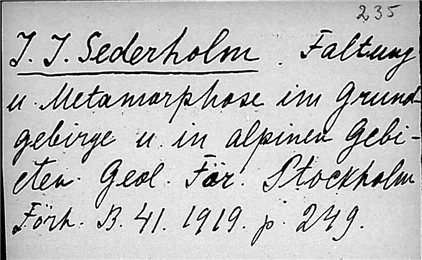 235
J. J. Sederholm. Faltung
u. Metamorphose im Grund-
gebirge u. in alpinen Gebi-
eten. Geol. För. Stockholm
Förh. B. 41. 1919. p. 249.